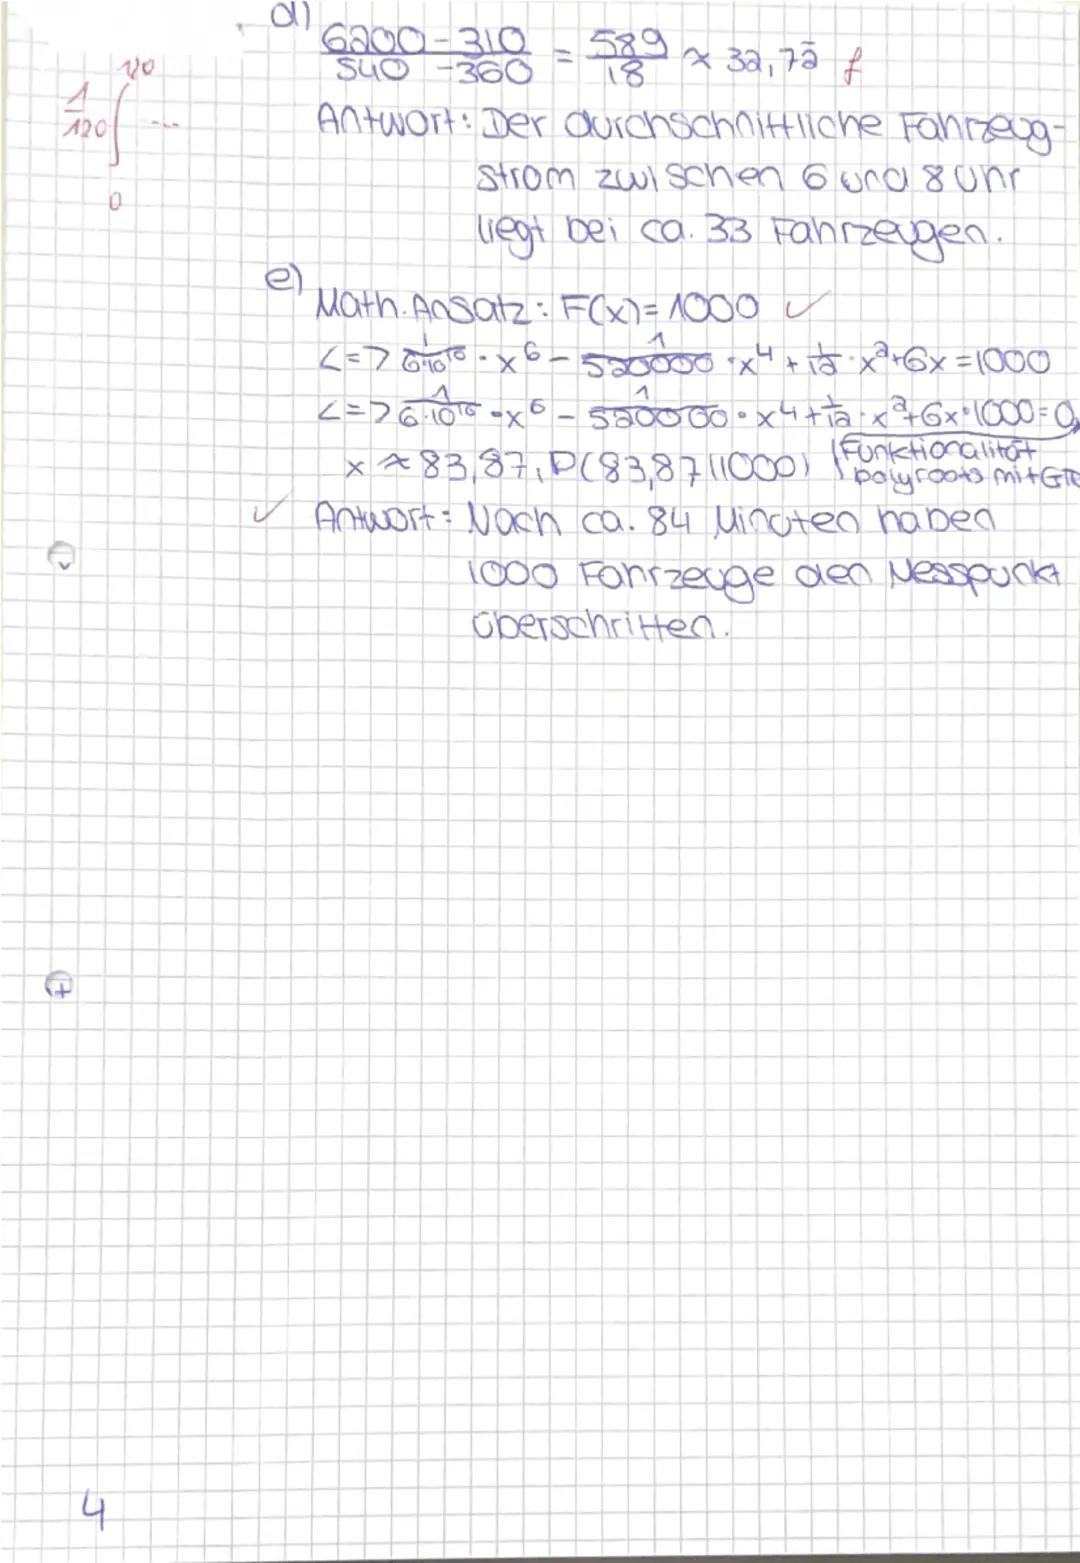 d) 6200-310 / 540-360 = 589/18 ≈ 32,72̄ f
1/120 ∫ 120 0 ...
Antwort: Der durchschnittliche Fahrzeug-
strom zwischen 6 und 8 Uhr
liegt bei ca. 33 Fahrzeugen.
e) Math. Ansatz: F(x)=1000 ✓
<=> 1/6·10¹⁰ · x⁶ - 1/520000 · x⁴ + 1/12 · x²+6x=1000
<=> 1/6·10¹⁰ · x⁶ - 1/520000 · x⁴ + 1/12 · x²+6x-1000=0
x ≈ 83,87, P(83,87|1000) | Funktionalität
polyroots mit GTR
✓ Antwort: Nach ca. 84 Minuten haben
1000 Fahrzeuge den Messpunkt
überschritten.
4